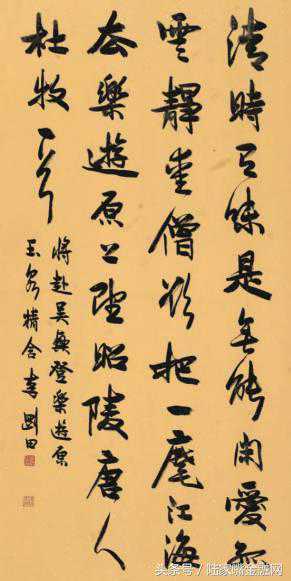 清時有味是無能閑愛孤
雲靜愛僧欲把一麾江海
去樂遊原上望昭陵唐人
杜牧
將赴吳興登樂遊原
精舍李剛田
头条号/陆家嘴金融网